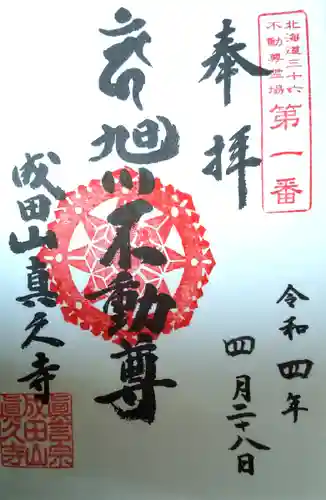 北海道三十六
不動尊霊場
第一番
奉拝
令和四年
四月二十八日
旭川不動尊
成田山真久寺
真言宗
成田山
眞久寺